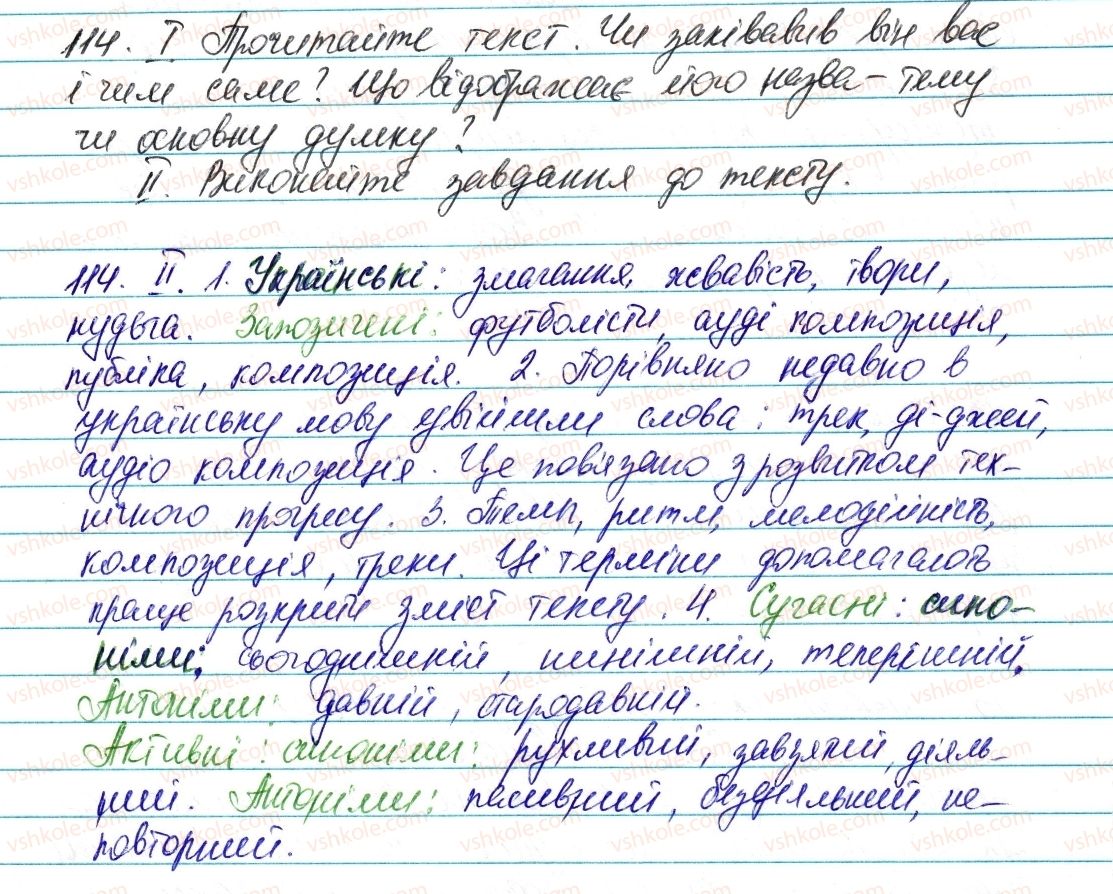 114. I Прочитайте текст. Чи зацікавив він вас
і чим саме? Що відображає його назва – тему
чи основну думку?
II. Виконайте завдання до тексту.
114. II. 1. Українські: змагання, жвавість, твори,
нудьга. Запозичені: футболісти, ауді композиція,
публіка, композиція. 2. Порівняно недавно в
українську мову увійшли слова: трек, ді-джей,
аудіо композиція. Це пов'язано з розвитком тех-
нічного прогресу. 3. Темп, ритм, мелодійність,
композиція, треки. Ці терміни допомагають
краще розкрити зміст тексту. 4. Сучасні: сино-
німи: сьогоднішній, нинішній, теперішній.
Антоніми: давній, стародавній.
Активні: синоніми: рухливий, завзятий, діяль-
ний. Антоніми: пасивний, бездіяльний, не-
повторний.